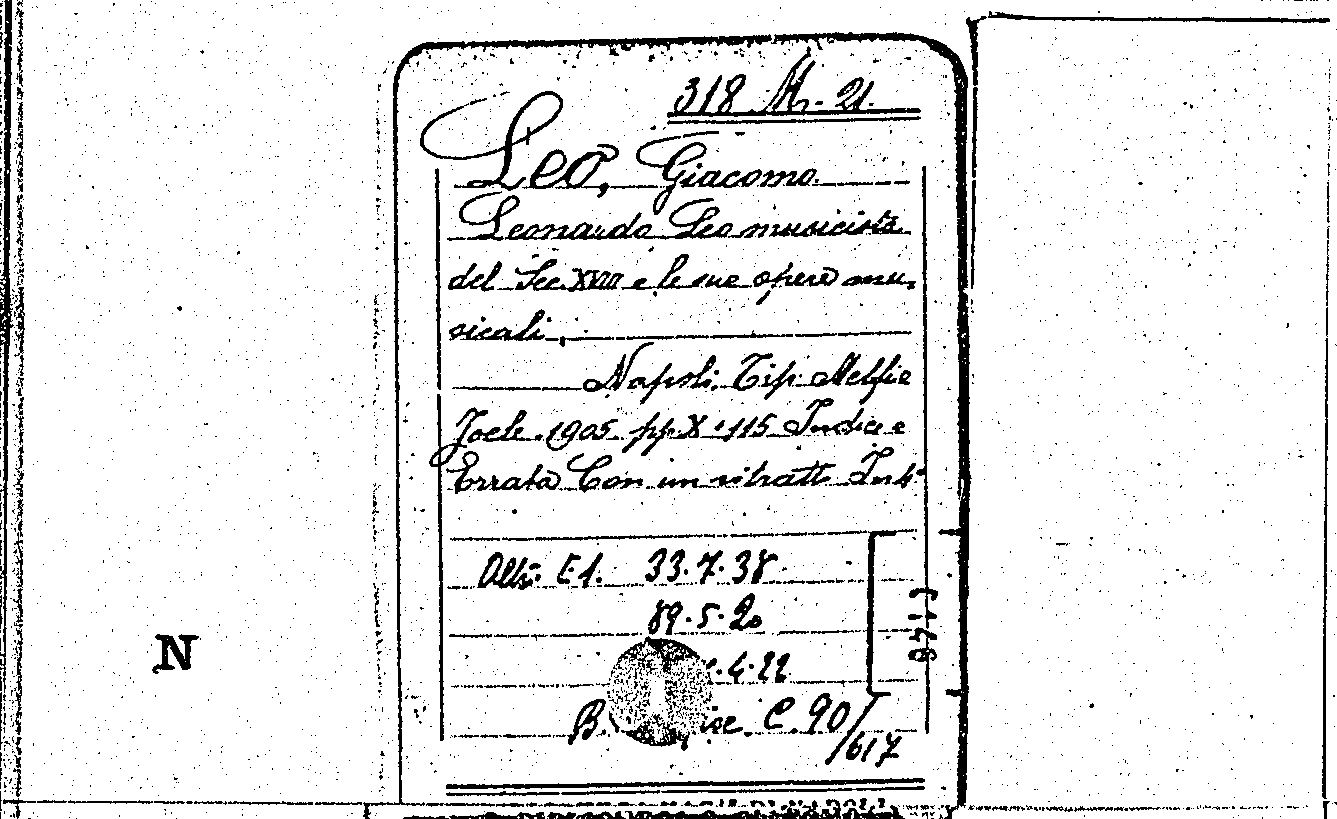 318 M. 21.
Leo, Giacomo
Leonardo Leo musicista
del Sec. XVIII e le sue opere mu-
sicali.
Napoli. Tip. Melfi e
Joele. 1905. pp. X-115 Indice e
Errata Con un ritratto
33.7.38
89.5.20
.4.22
B. C. 90/617
N